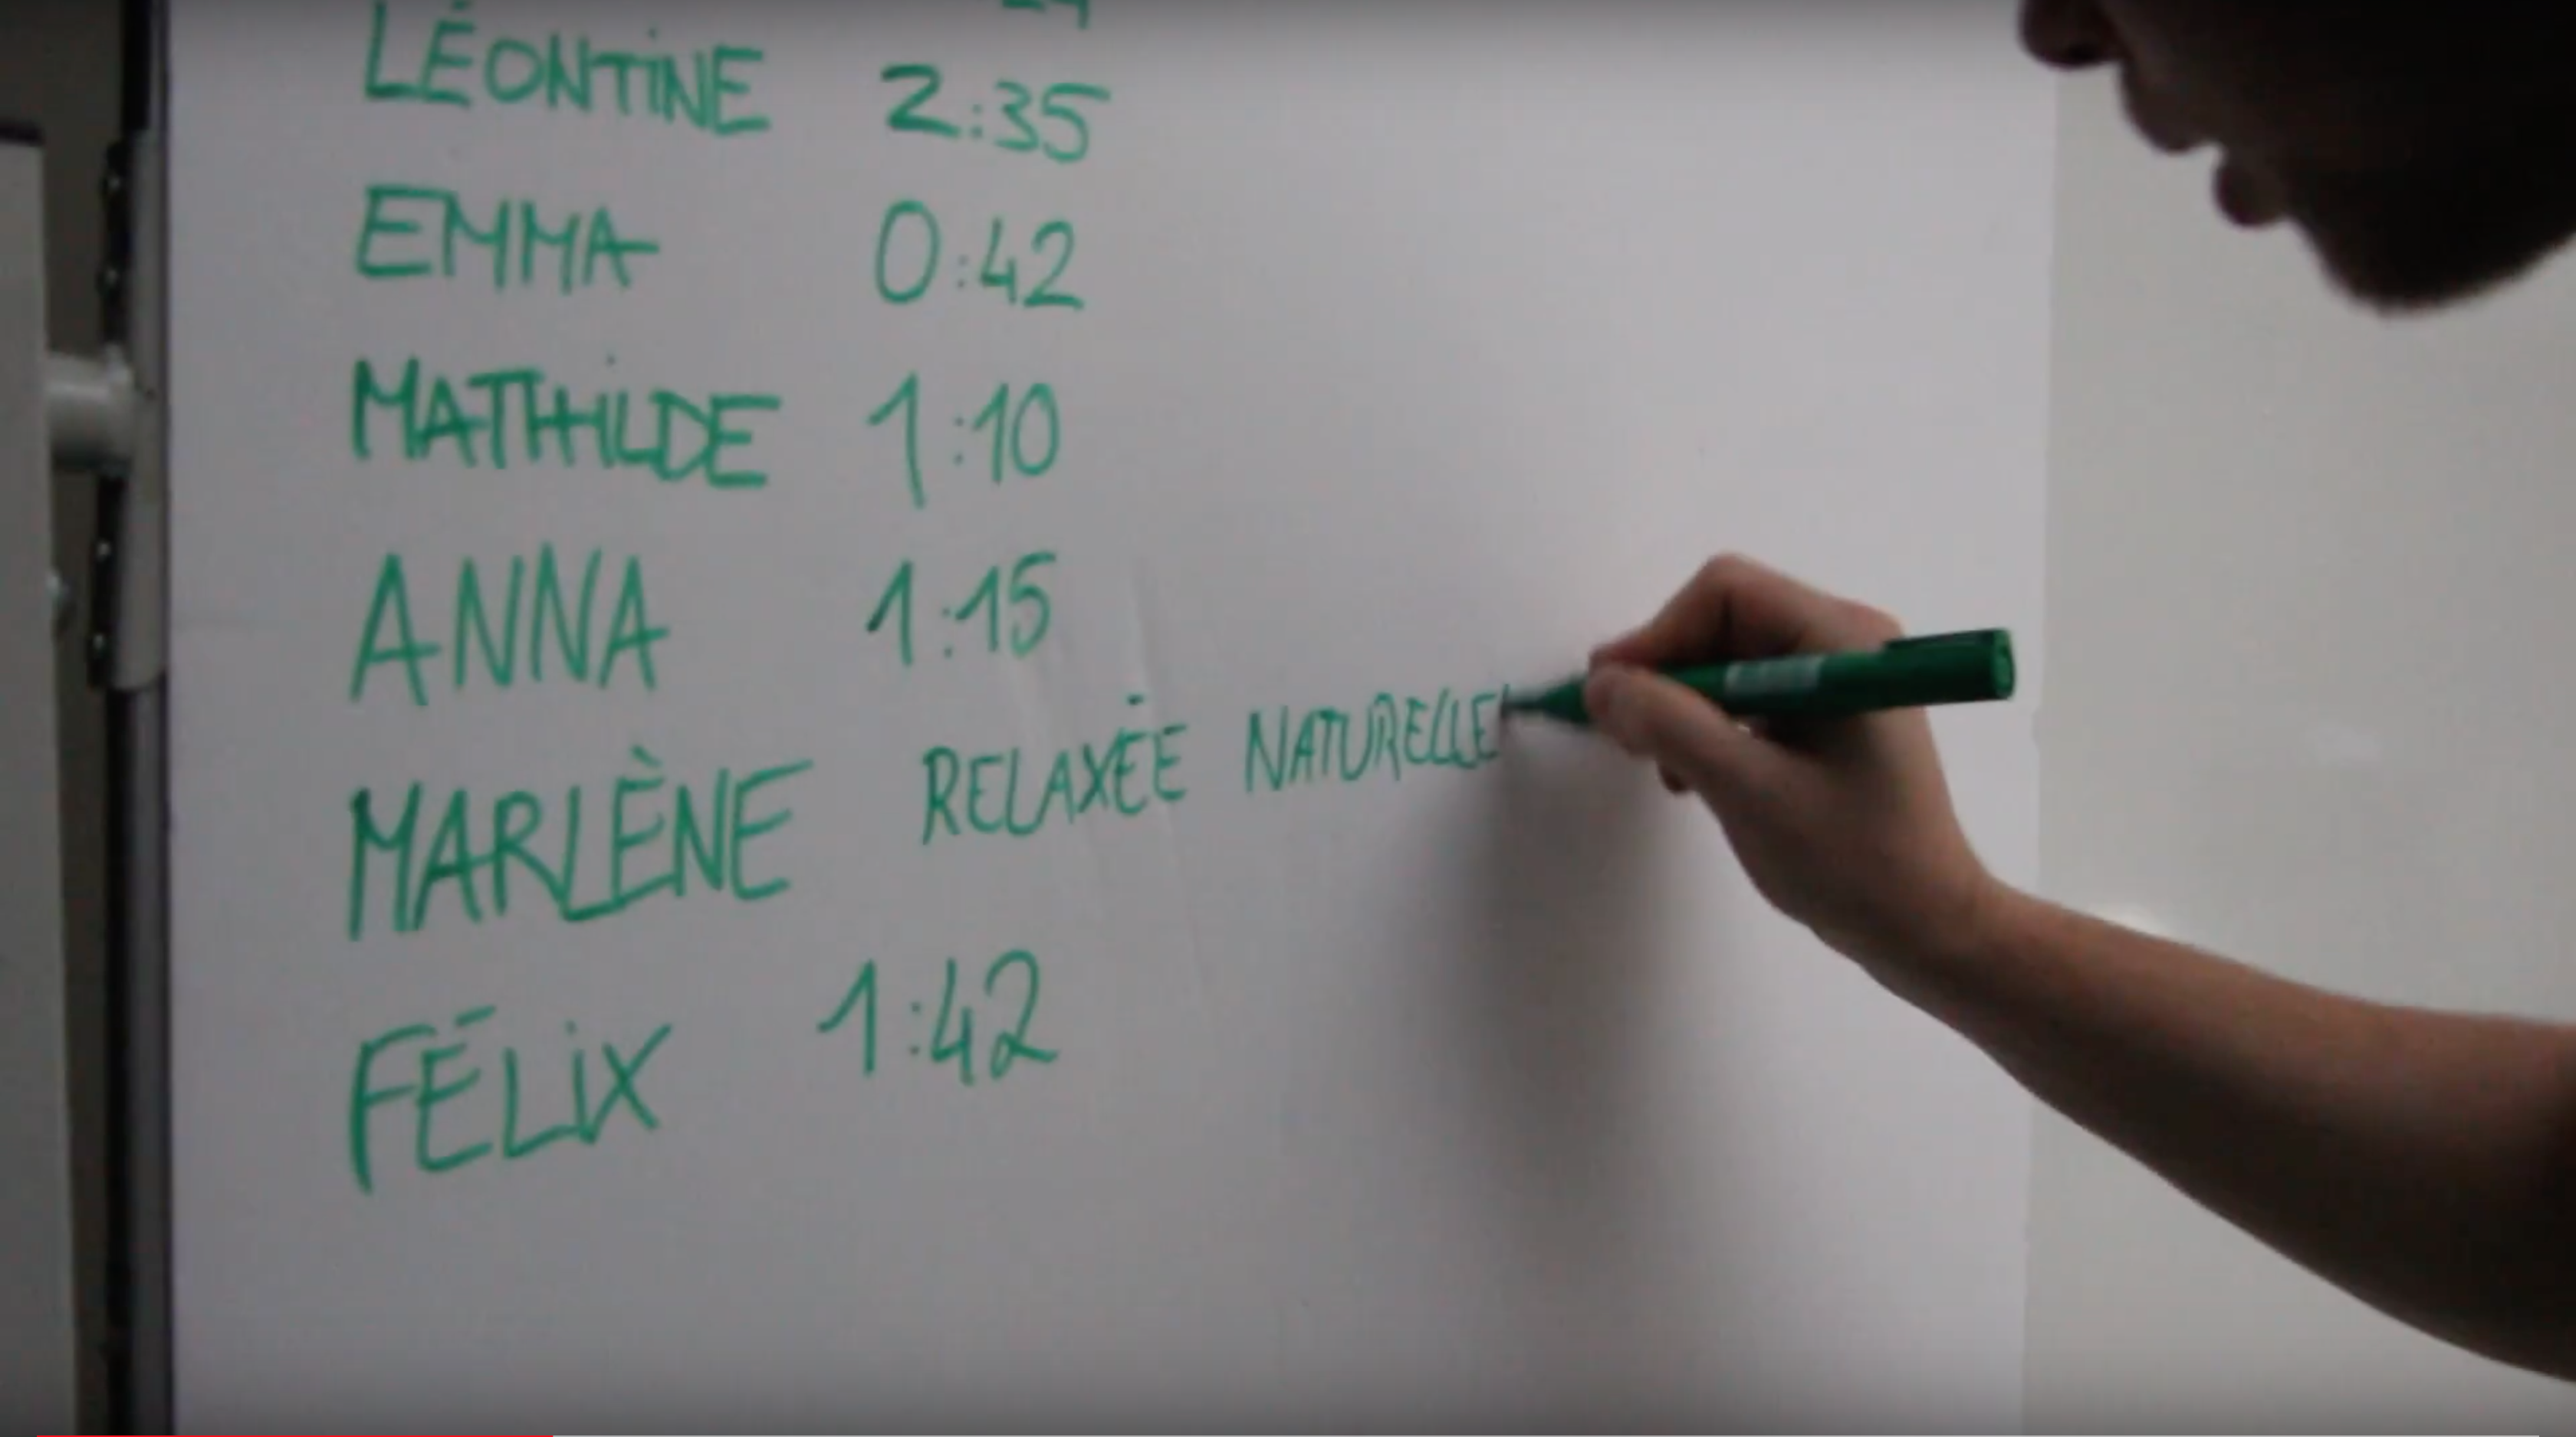 LÉONTINE 2:35
EMMA 0:42
MATHILDE 1:10
ANNA 1:15
MARLÈNE RELAXÉE NATURELLE
FÉLIX 1:42